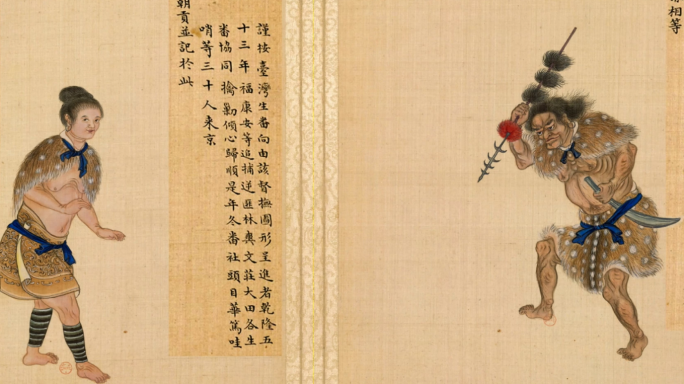 相等
謹按臺灣生番向由該督撫圖形呈進者乾隆五
十三年福康安等追捕逆匪林爽文莊大田各生
番協同擒勦傾心歸順是年冬番社頭目華篤哇
哨等三十人来京
朝貢並記於此